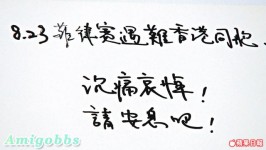 8.23菲律賓遇難香港同胞.
沉痛哀悼!
請安息吧!
Amigobbs
蘋果日報